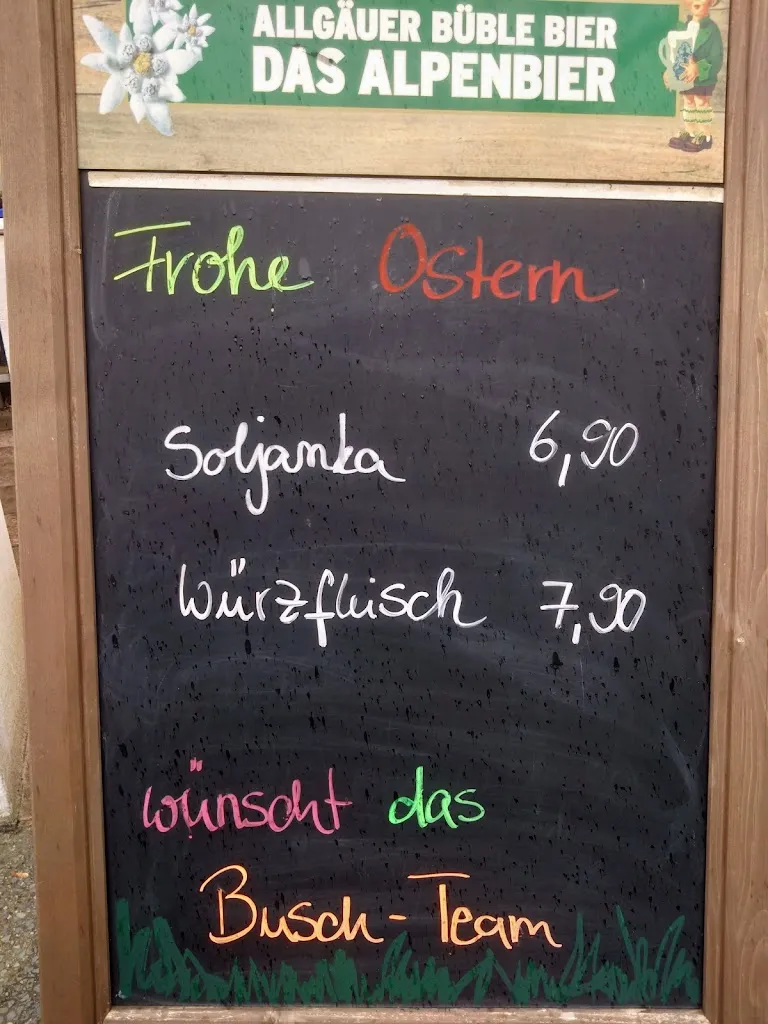 ALLGÄUER BÜBLE BIER
DAS ALPENBIER
Frohe Ostern
Soljanka 6,90
Würzfleisch 7,90
wünscht das
Busch-Team